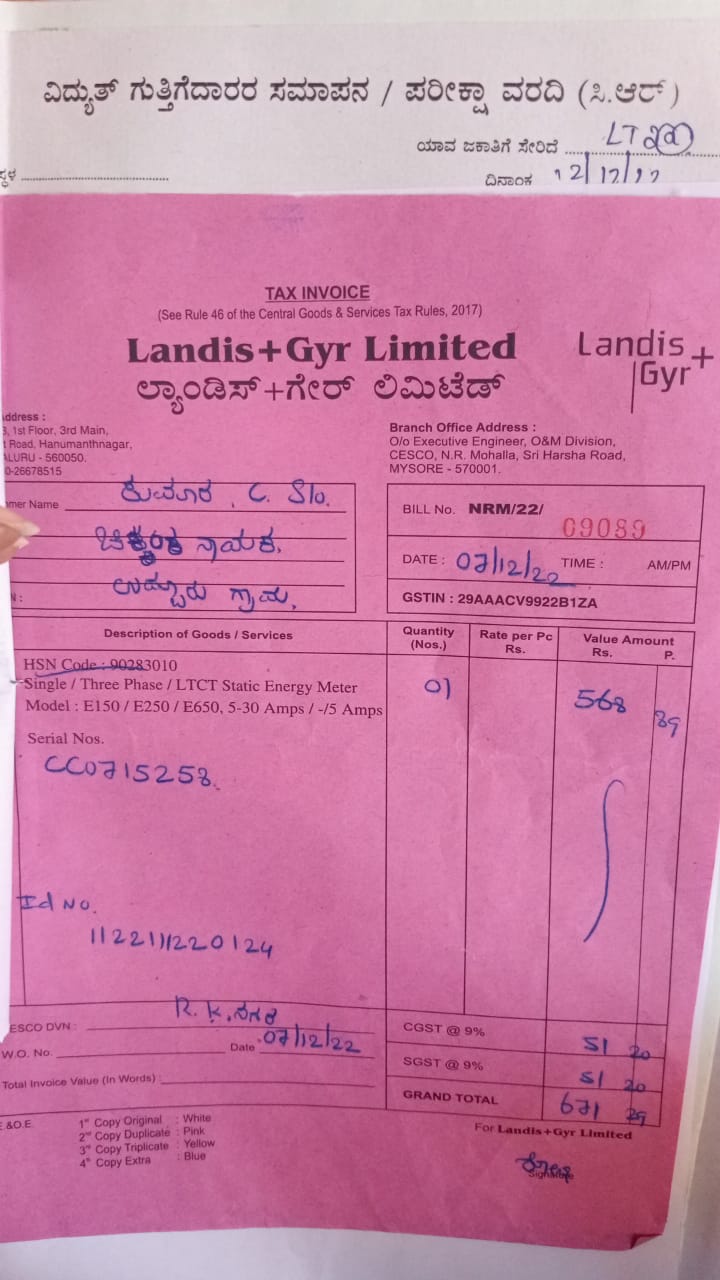 ವಿದ್ಯುತ್ ಗುತ್ತಿಗೆದಾರರ ಸಮಾಪನ / ಪರೀಕ್ಷಾ ವರದಿ (ಸಿ.ಆರ್)
ಯಾವ ಜಕಾತಿಗೆ ಸೇರಿದೆ LT
ದಿನಾಂಕ 12/12/22
TAX INVOICE
(See Rule 46 of the Central Goods & Services Tax Rules, 2017)
Landis+Gyr Limited
ಲ್ಯಾಂಡಿಸ್+ಗೇರ್ ಲಿಮಿಟೆಡ್
Landis+
Gyr
ddress :
, 1st Floor, 3rd Main,
Road, Hanumanthnagar,
ALURU - 560050.
0-26678515
Branch Office Address :
O/o Executive Engineer, O&M Division,
CESCO, N.R. Mohalla, Sri Harsha Road,
MYSORE - 570001.
mer Name ಕುಮಾರ. C. S/o.
ನಾಯಕ.
ಉದ್ಬೂರು ಗ್ರಾಮ,
BILL No. NRM/22/ 09089
DATE : 07/12/22 TIME : AM/PM
GSTIN : 29AAACV9922B1ZA
Description of Goods / Services Quantity (Nos.) Rate per Pc Rs. Value Amount Rs. P.
HSN Code : 90283010
Single / Three Phase / LTCT Static Energy Meter 01 568 89
Model : E150 / E250 / E650, 5-30 Amps / -/5 Amps
Serial Nos.
CC0715258.
Id No.
1122111220124
ESCO DVN : R.K.ನಗರ
W.O. No. Date 07/12/22
Total Invoice Value (In Words) :
CGST @ 9% 51 20
SGST @ 9% 51 20
GRAND TOTAL 671 29
E.&O.E. 1st Copy Original : White
2nd Copy Duplicate : Pink
3rd Copy Triplicate : Yellow
4th Copy Extra : Blue
For Landis+Gyr Limited
Signature